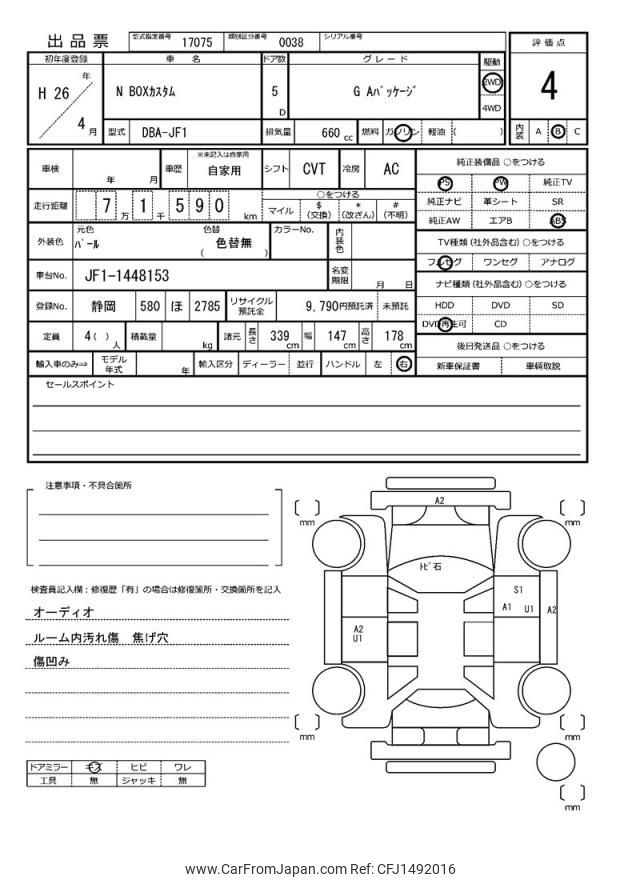 出品票 型式指定番号 17075 類別区分番号 0038 シリアル番号
評価点
4
初年度登録 車名 ドア数 グレード 駆動
H 26 年 4 月
N BOXカスタム 5 D G Aパッケージ 2WD 4WD
型式 DBA-JF1 排気量 660 cc 燃料 ガソリン 軽油 ( )
内装 A B C
車検 年 月 車歴 ※未記入は自家用 自家用 シフト CVT 冷房 AC
走行距離 7 万 1 千 5 9 0 km
○をつける
マイル $ (交換) * (改ざん) # (不明)
外装色 元色 パール 色替 ( 色替無 ) カラーNo. 内装色
車台No. JF1-1448153 名変期限 月 日
登録No. 静岡 580 ほ 2785 リサイクル預託金 9,790円預託済 未預託
定員 4( ) 人 積載量 kg 諸元 長さ 339 cm 幅 147 cm 高さ 178 cm
輸入車のみ⇒ モデル年式 年 輸入区分 ディーラー 並行 ハンドル 左 右
純正装備品 ○をつける
PS PW 純正TV
純正ナビ 革シート SR
純正AW エアB ABS
TV種類 (社外品含む) ○をつける
フルセグ ワンセグ アナログ
ナビ種類 (社外品含む) ○をつける
HDD DVD SD
DVD再生可 CD
後日発送品 ○をつける
新車保証書 車輌取説
セールスポイント
注意事項・不具合箇所
検査員記入欄：修復歴「有」の場合は修復箇所・交換箇所を記入
オーディオ
ルーム内汚れ傷 焦げ穴
傷凹み
ドアミラー キズ ヒビ ワレ
工具 無 ジャッキ 無
mm
mm
A2
トビ石
S1
A1 U1 A2
A2
U1
mm
mm
mm
www.CarFromJapan.com Ref: CFJ1492016